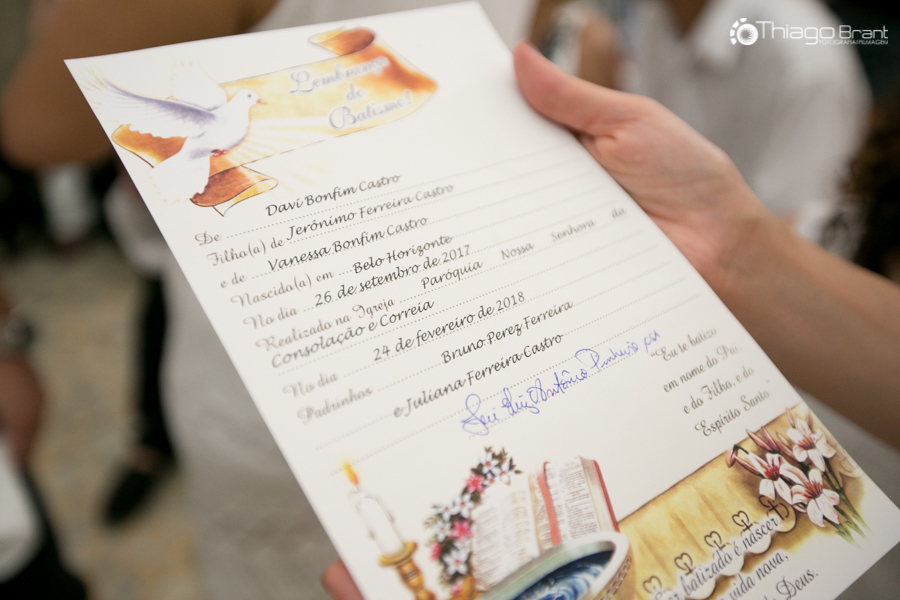 Thiago Brant
FOTOGRAFIA|FILMAGEM
Lembrança
de
Batismo!
De ... Davi Bonfim Castro
Filho(a) de Jerônimo Ferreira Castro
e de ... Vanessa Bonfim Castro
Nascido(a) em ... Belo Horizonte
No dia ... 26 de setembro de 2017
Realizado na Igreja ... Paróquia Nossa Senhora da
Consolação e Correia
No dia ... 24 de fevereiro de 2018
Padrinhos ... Bruno Perez Ferreira
e Juliana Ferreira Castro
Luiz Antônio Pinheiro
"Eu te batizo
em nome do Pai,
e do Filho, e do
Espírito Santo."
Ser batizado é nascer
vida nova,
Deus.